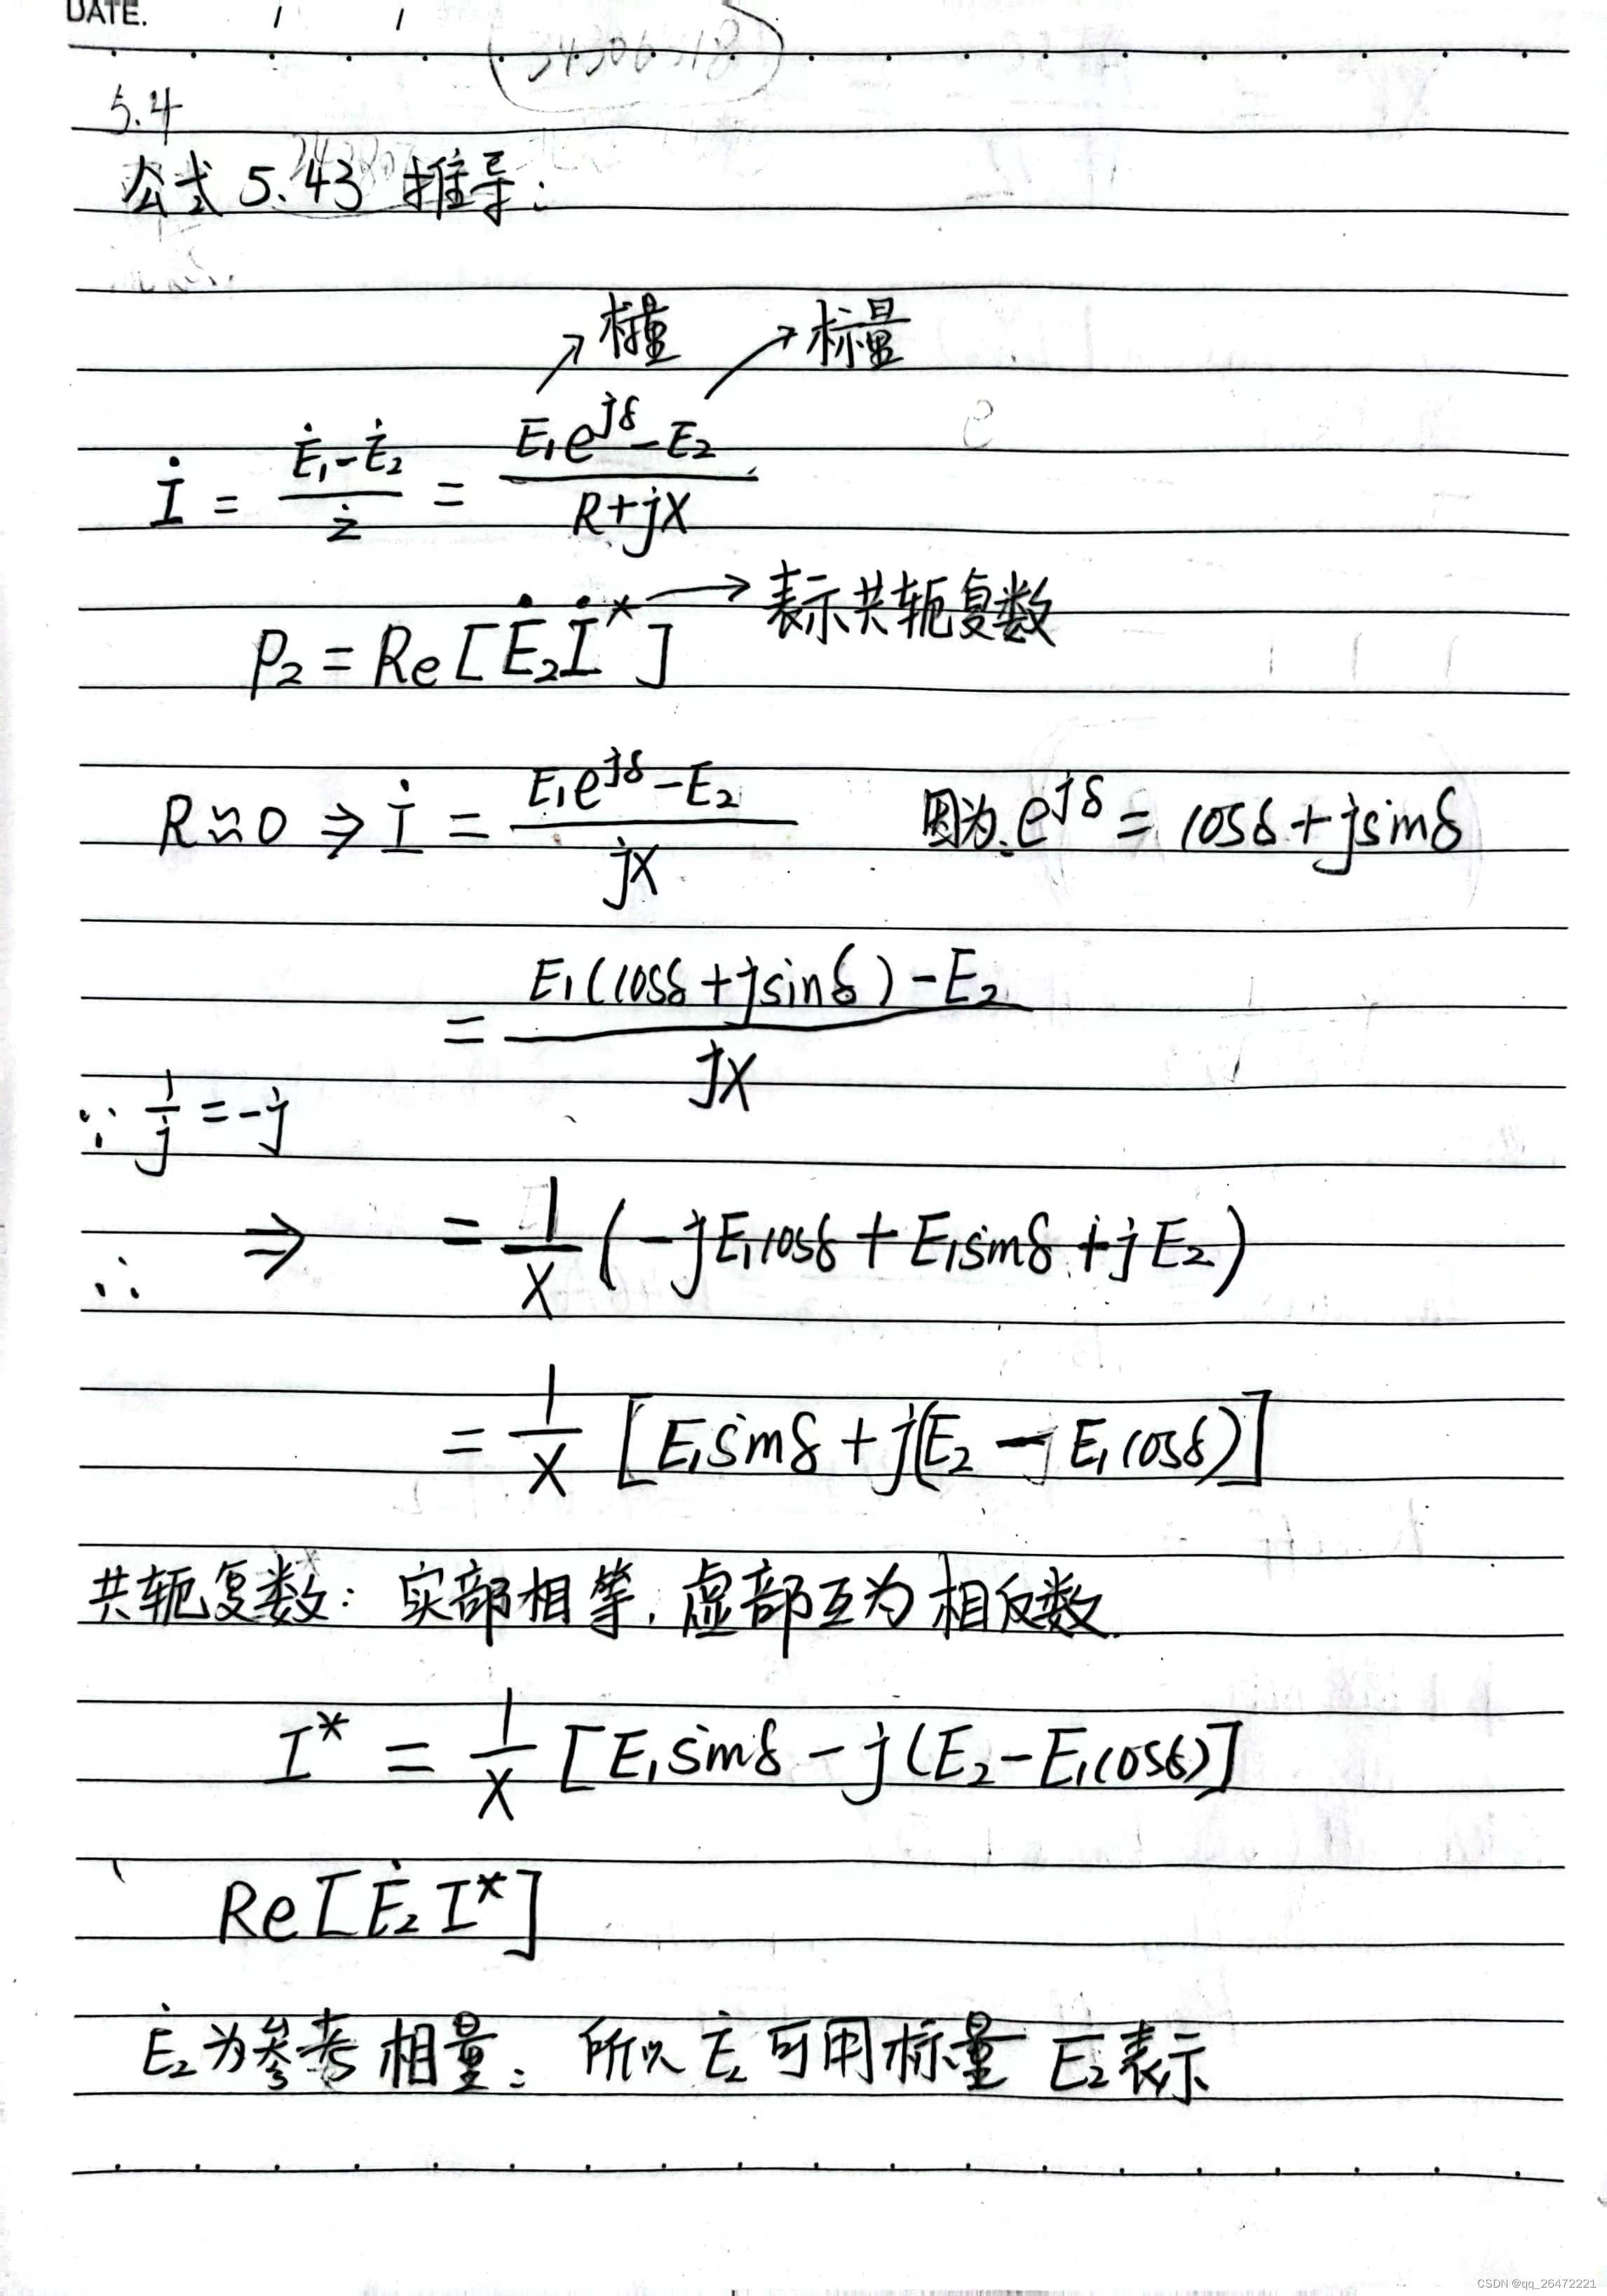 DATE. / /
5.4
公式 5.43 推导:
标量 标量
İ = (Ė₁-Ė₂)/ż = (E₁e^{jδ}-E₂)/(R+jX)
P₂ = Re[Ė₂İ*] → 表示共轭复数
R≈0 ⇒ İ = (E₁e^{jδ}-E₂)/(jX) 因为 e^{jδ} = cosδ+jsinδ
= (E₁(cosδ+jsinδ)-E₂)/(jX)
∵ 1/j = -j
∴ ⇒ = 1/X (-jE₁cosδ + E₁sinδ + jE₂)
= 1/X [E₁sinδ + j(E₂ - E₁cosδ)]
共轭复数: 实部相等, 虚部互为相反数.
I* = 1/X [E₁sinδ - j(E₂-E₁cosδ)]
Re[Ė₂I*]
Ė₂为参考相量; 所以 Ė₂可用标量 E₂表示
CSDN @qq_26472221